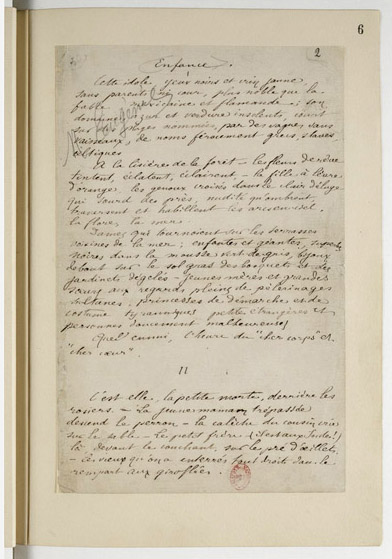 6
2
Enfance.
Cette idole, yeux noirs et crin jaune,
sans parents ni cour, plus noble que la
fable, mexicaine et flamande ; son
domaine, azur et verdure insolents, court
sur des plages nommées, par des vagues sans
vaisseaux, de noms férocement grecs, slaves,
celtiques.
A la lisière de la forêt — les fleurs de rêve
tintent, éclatent, éclairent, — la fille à lèvre
d'orange, les genoux croisés dans le clair déluge
qui sourd des prés, nudité qu'ombrent,
traversent et habillent les arcs-en-ciel,
la flore, la mer.
Dames qui tournoient sur les terrasses
voisines de la mer ; enfantes et géantes, superbes
noires dans la mousse vert-de-gris, bijoux
debout sur le sol gras des bosquets et des
jardinets dégelés — jeunes mères et grandes
sœurs aux regards pleins de pèlerinages,
sultanes, princesses de démarche et de
costume tyranniques petites étrangères et
personnes doucement malheureuses
Quel ennui, l'heure du "cher corps" et
"cher cœur".
II
C'est elle, la petite morte, derrière les
rosiers. — La jeune maman trépassée
descend le perron — La calèche du cousin crie
sur le sable — Le petit frère — (il est aux Indes!)
là, devant le couchant, sur le pré d'œillets.
— Les vieux qu'on a enterrés tout droits dans le
rempart aux giroflées.